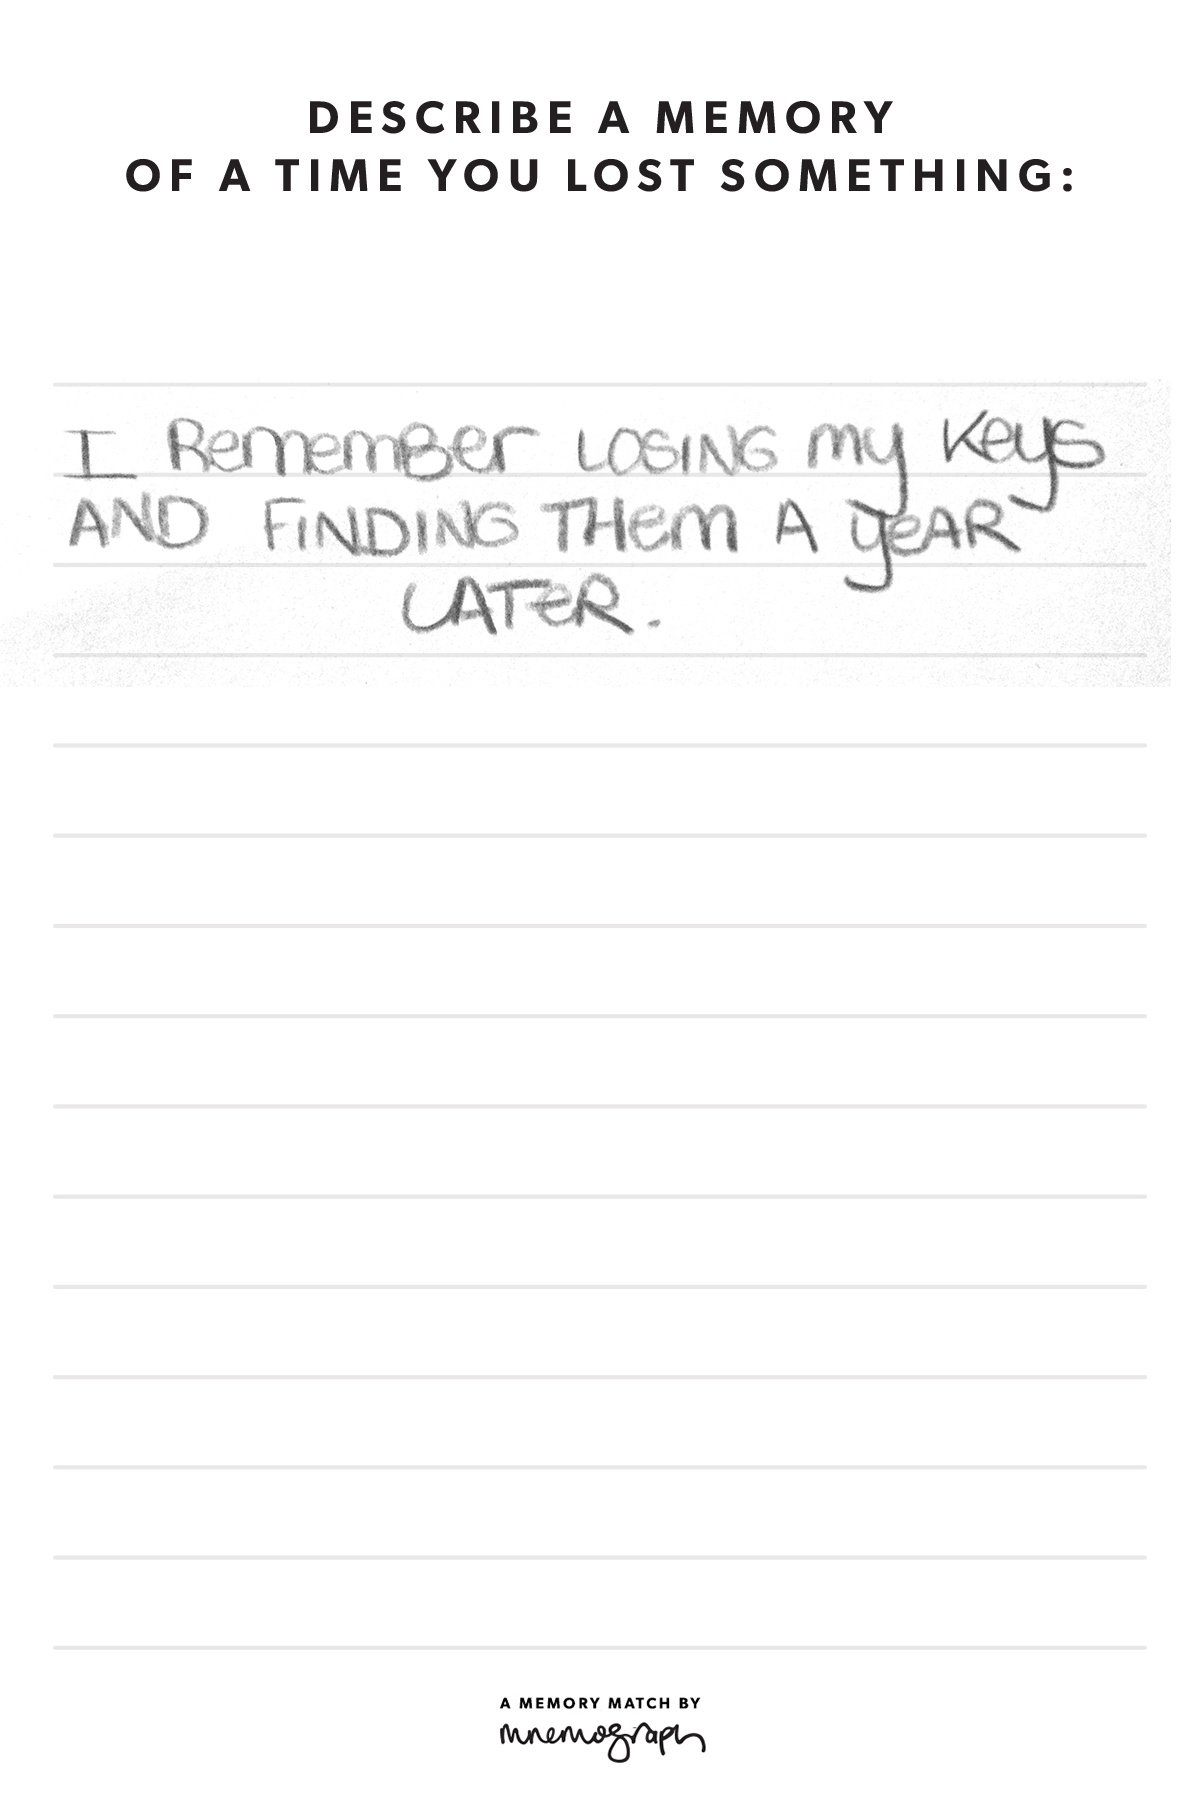 DESCRIBE A MEMORY
OF A TIME YOU LOST SOMETHING:
I Remember LOSING my Keys
AND FINDING THEM A YEAR
LATER.
A MEMORY MATCH BY
mnemograph